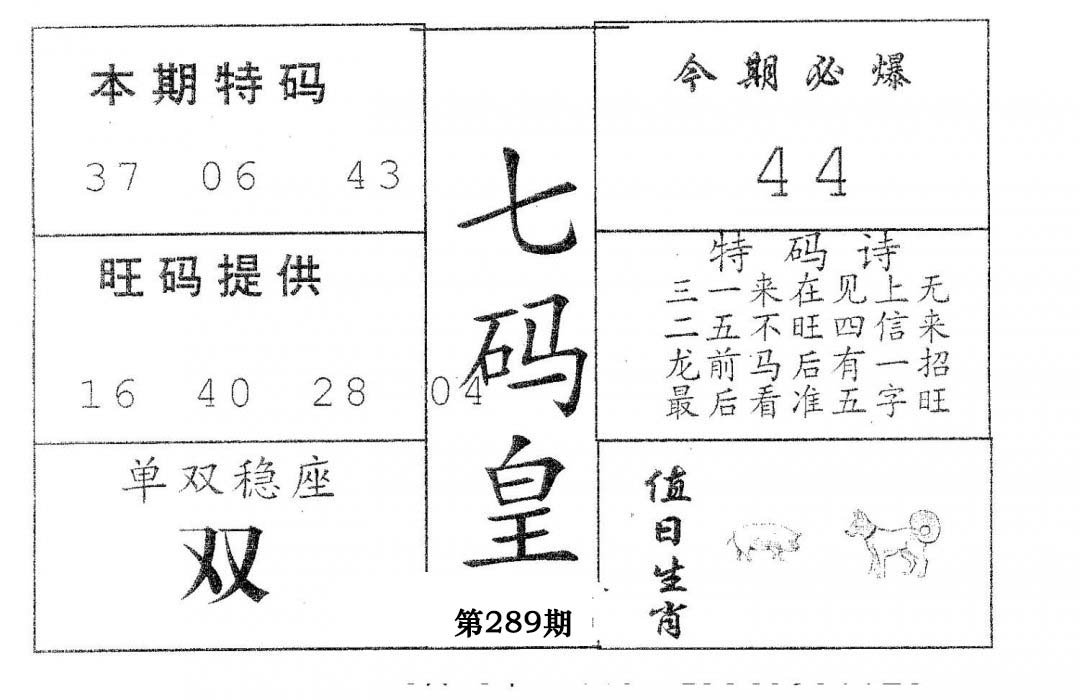 本期特码
37 06 43
旺码提供
16 40 28 04
单双稳座
双
七码皇
第289期
今期必爆
44
特码诗
三一来在见上无
二五不旺四信来
龙前马后有一招
最后看准五字旺
值日生肖